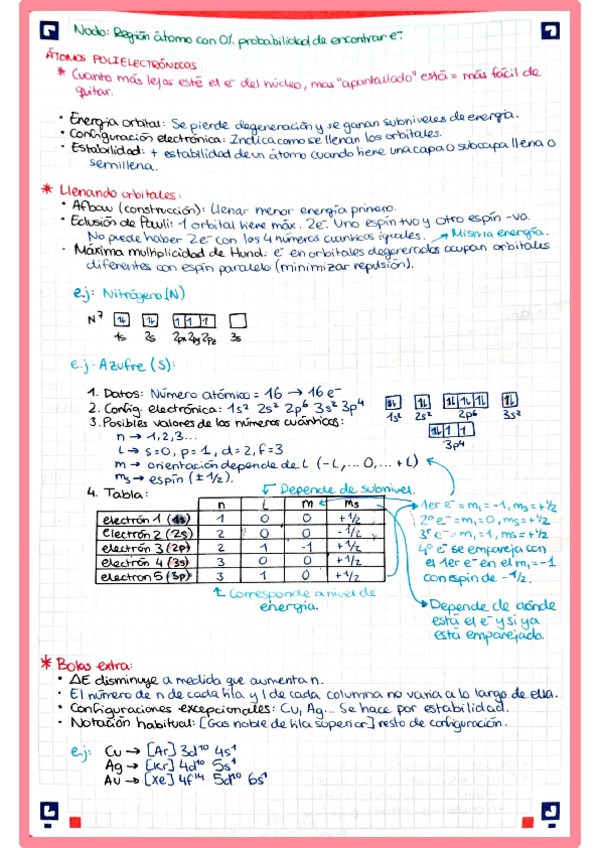 Nodo: Región átomo con 0% probabilidad de encontrar e⁻.
ÁTOMOS POLIELECTRÓNICOS
* Cuanto más lejos esté el e⁻ del núcleo, mas "apantallado" está = más fácil de
quitar.
• Energia orbital: Se pierde degeneración y se ganan subniveles de energía.
• Configuración electrónica: Indica como se llenan los orbitales.
• Estabilidad: + estabilidad de un átomo cuando tiene una capa o subcapa llena o
semillena.
* Llenando orbitales:
• Afbau (construcción): Llenar menor energía primero.
• Eclusión de Pauli: 1 orbital tiene máx. 2e⁻. Uno espín +vo y otro espín -vo.
No puede haber 2e⁻ con los 4 números cuánticos iguales. → Misma energía.
• Máxima multiplicidad de Hund: e⁻ en orbitales degenerados ocupan orbitales
diferentes con espín paralelo (minimizar repulsión).
e.j: Nitrógeno (N)
N⁷ ⥮ ⥮ 1 1 1
1s 2s 2px 2py 2pz 3s
e.j. Azufre (S):
1. Datos: Número atómico = 16 → 16 e⁻
2. Config. electrónica: 1s² 2s² 2p⁶ 3s² 3p⁴
1s² 2s² 2p⁶ 3s²
3p⁴
3. Posibles valores de los números cuánticos:
n → 1,2,3...
L → s=0, p=1, d=2, f=3
m → orientación depende de L (-L, ... 0, ... + L)
ms → espín (± 1/2).
4. Tabla:
Depende de subnivel.
n L m ms
electrón 1 (1s) 1 0 0 +1/2
Electrón 2 (2s) 2 0 0 -1/2
electrón 3 (2p) 2 1 -1 +1/2
electrón 4 (3s) 3 0 0 +1/2
electron 5 (3p) 3 1 0 +1/2
Corresponde a nivel de
energía.
1er e⁻ = m₁ = -1, ms = +1/2
2º e⁻ = m₁ = 0, ms = +1/2
3r e⁻ = m₁ = 1, ms = +1/2
4º e⁻ se empareja con
el 1er e⁻ en el m₁ = -1
con espín de -1/2.
Depende de dónde
está el e⁻ y si ya
está emparejado.
* Bolas extra:
• ΔE disminuye a medida que aumenta n.
• El número de n de cada fila y l de cada columna no varia a lo largo de ella.
• Configuraciones excepcionales: Cu, Ag... Se hace por estabilidad.
• Notación habitual: [Gas noble de fila superior] resto de configuración.
e.j: Cu → [Ar] 3d¹⁰ 4s¹
Ag → [Kr] 4d¹⁰ 5s¹
Au → [Xe] 4f¹⁴ 5d¹⁰ 6s¹